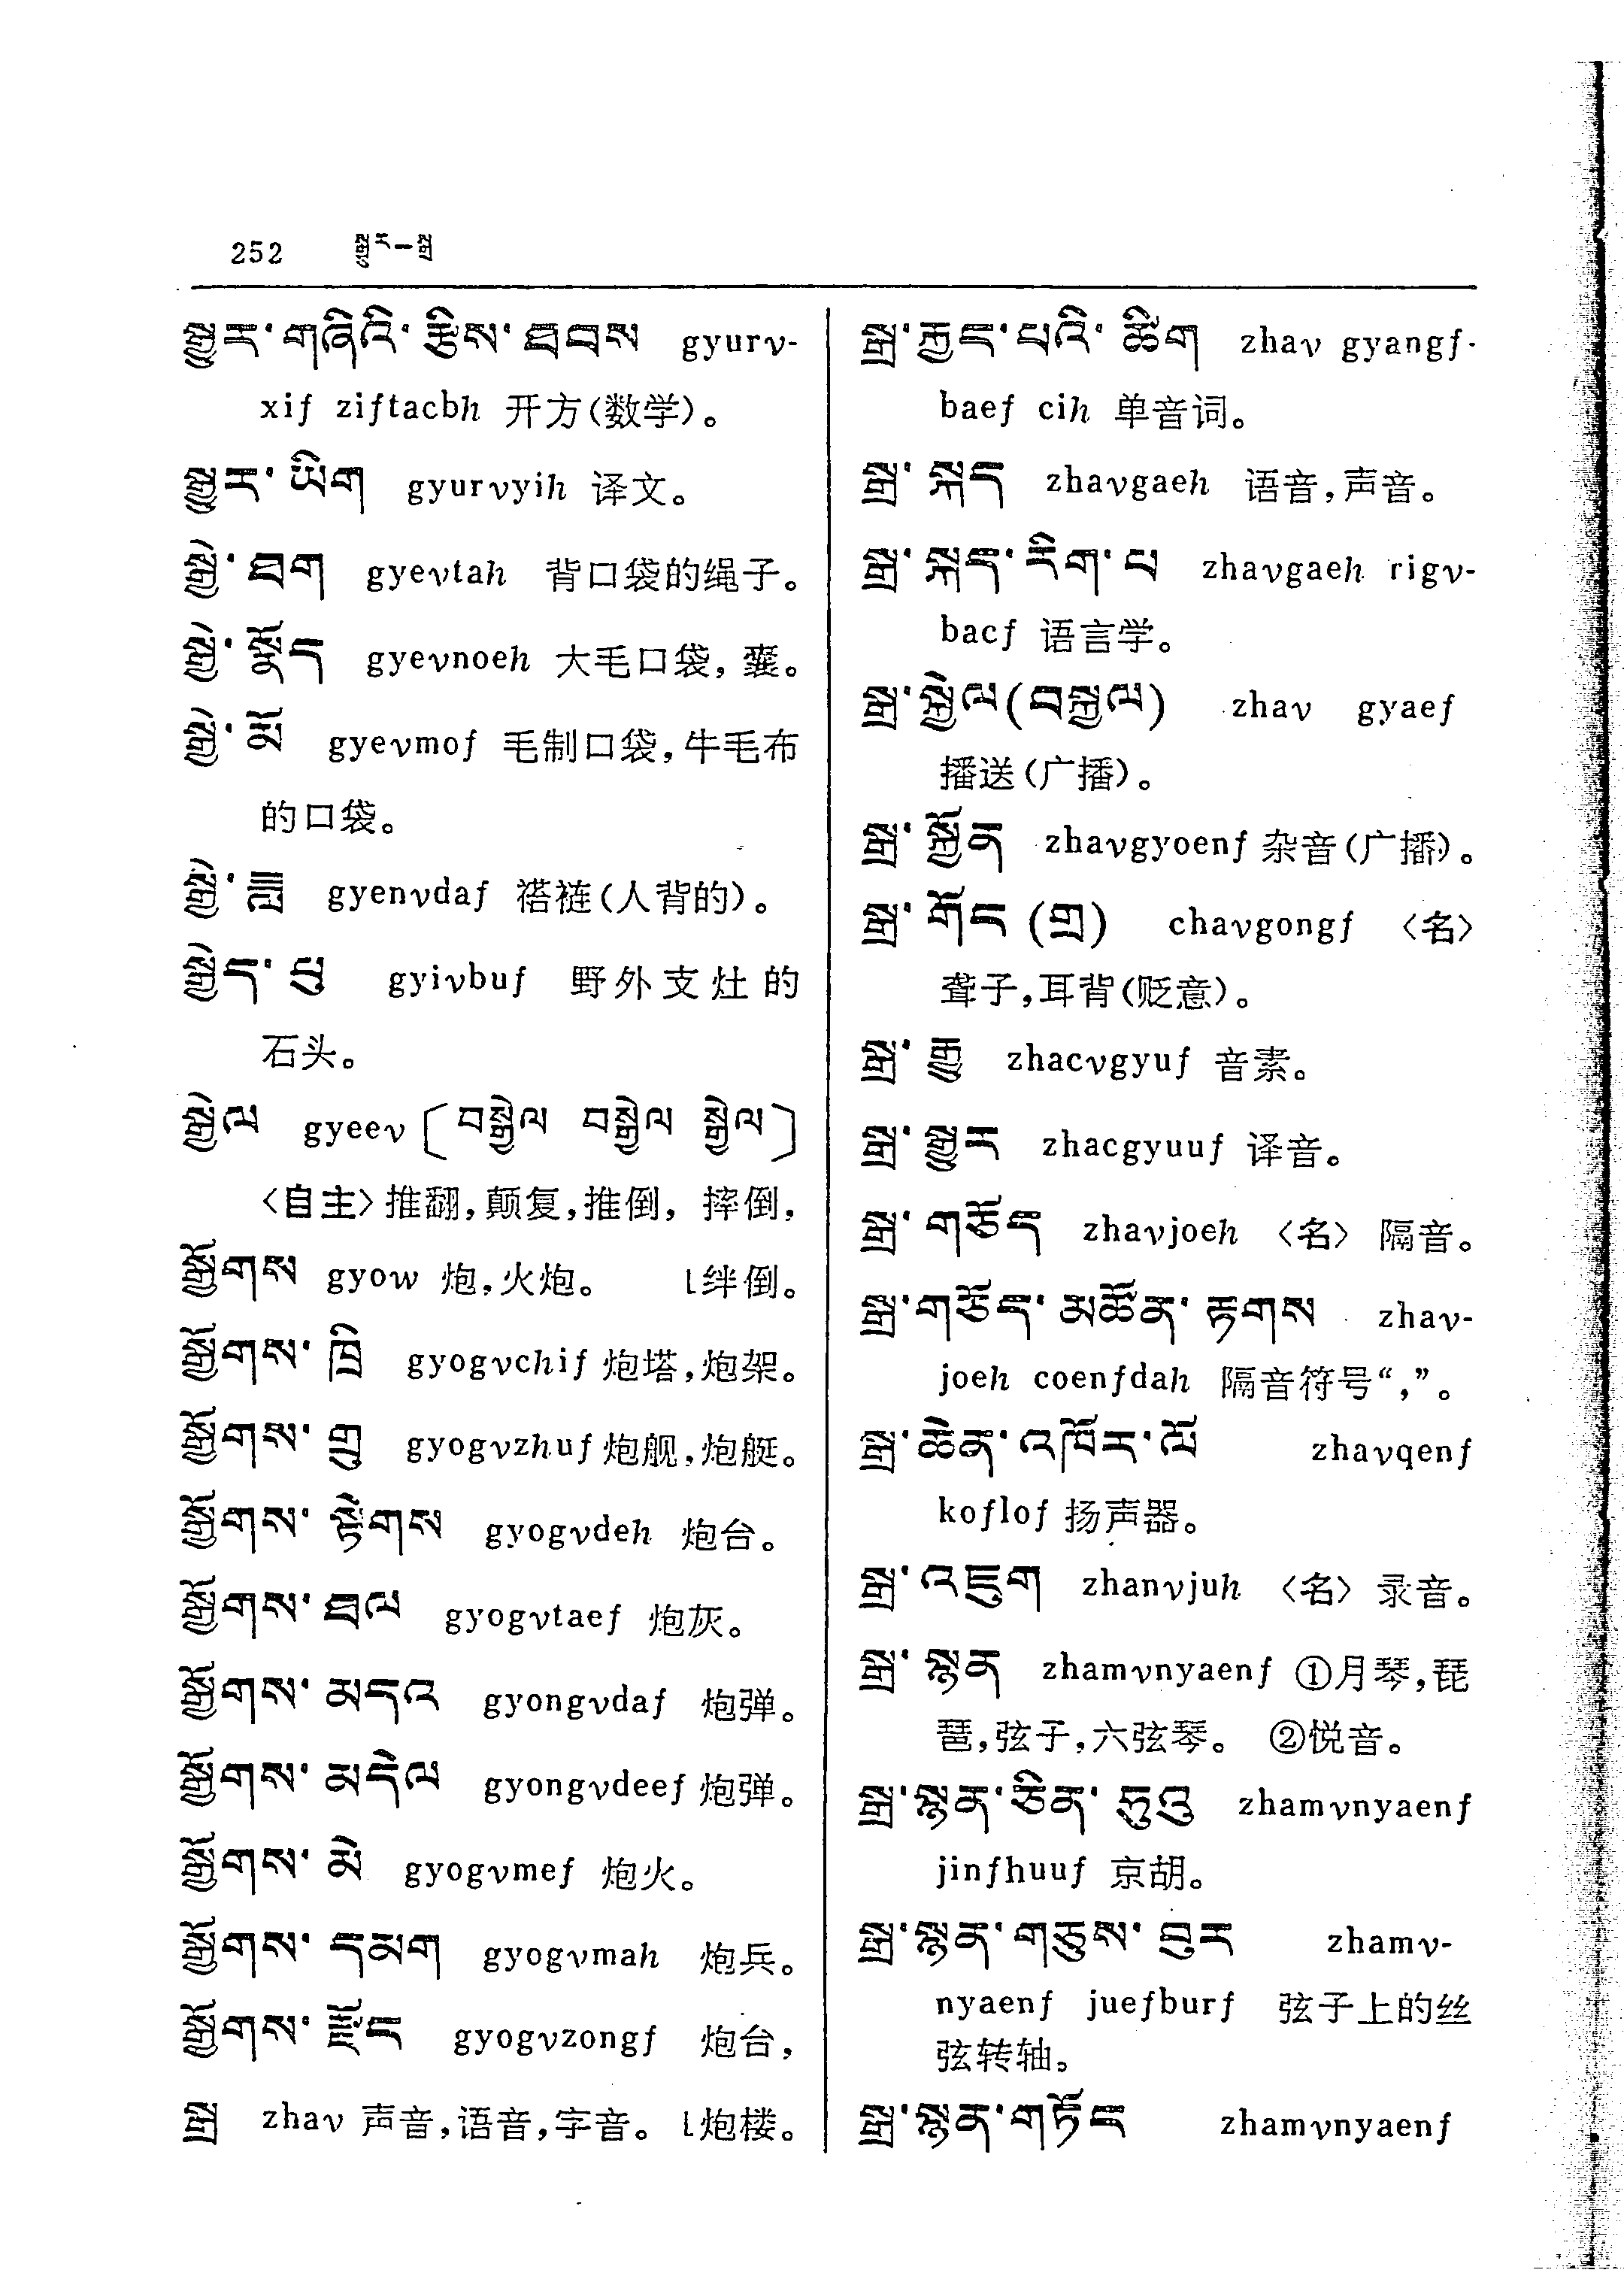 252 སྒྱུར—སྒྲ
སྒྱུར་གཞིའི་རྩིས་ཐབས gyurv-
xif ziftacbh 开方(数学)。
སྒྱུར་ཡིག gyurvyih 译文。
སྒྱེ་ཐག gyevtah 背口袋的绳子。
སྒྱེ་སྣོད gyevnoeh 大毛口袋,囊。
སྒྱེ་མོ gyevmof 毛制口袋,牛毛布
的口袋。
སྒྱེ་ gyenvdaf 褡裢(人背的)。
སྒྱེད་པུ gyivbuf 野外支灶的
石头。
སྒྱེལ gyeev〔བསྒྱེལ བསྒྱེལ སྒྱེལ〕
〈自主〉推翻,颠复,推倒,摔倒,
སྒྱོགས gyow 炮,火炮。 ⌊绊倒。
སྒྱོགས་ཁྲི gyogvchif 炮塔,炮架。
སྒྱོགས་གྲུ gyogvzhuf 炮舰,炮艇。
སྒྱོགས་སྟེགས gyogvdeh 炮台。
སྒྱོགས་ཐལ gyogvtaef 炮灰。
སྒྱོགས་མདའ gyongvdaf 炮弹。
སྒྱོགས་མདེལ gyongvdeef 炮弹。
སྒྱོགས་མེ gyogvmef 炮火。
སྒྱོགས་དམག gyogvmah 炮兵。
སྒྱོགས་རྫོང gyogvzongf 炮台,
སྒྲ zhav 声音,语音,字音。 ⌊炮楼。
སྒྲ་རྐྱང་པའི་ཚིག zhav gyangf-
baef cih 单音词。
སྒྲ་སྐད zhavgaeh 语音,声音。
སྒྲ་སྐད་རིག་པ zhavgaeh rigv-
bacf 语言学。
སྒྲ་སྐྱེལ(བསྐྱལ) zhav gyaef
播送(广播)。
སྒྲ་སྐྱོན zhavgyoenf 杂音(广播)。
སྒྲ་གོང(གྲ) chavgongf 〈名〉
聋子,耳背(贬意)。
སྒྲ་རྒྱུ zhacvgyuf 音素。
སྒྲ་སྒྱུར zhacgyuuf 译音。
སྒྲ་གཅོད zhavjoeh 〈名〉 隔音。
སྒྲ་གཅོད་མཚོན་རྟགས zhav-
joeh coenfdah 隔音符号“,”。
སྒྲ་ཆེན་འཁོར་ལོ zhavqenf
koflof 扬声器。
སྒྲ་འཇུག zhanvjuh 〈名〉 录音。
སྒྲ་སྙན zhamvnyaenf ①月琴,琵
琶,弦子,六弦琴。 ②悦音。
སྒྲ་སྙན་ཅིན་ཧུའུ zhamvnyaenf
jinfhuuf 京胡。
སྒྲ་སྙན་གཅུས་བུར zhamv-
nyaenf juefburf 弦子上的丝
弦转轴。
སྒྲ་སྙན་གཏོང zhamvnyaenf